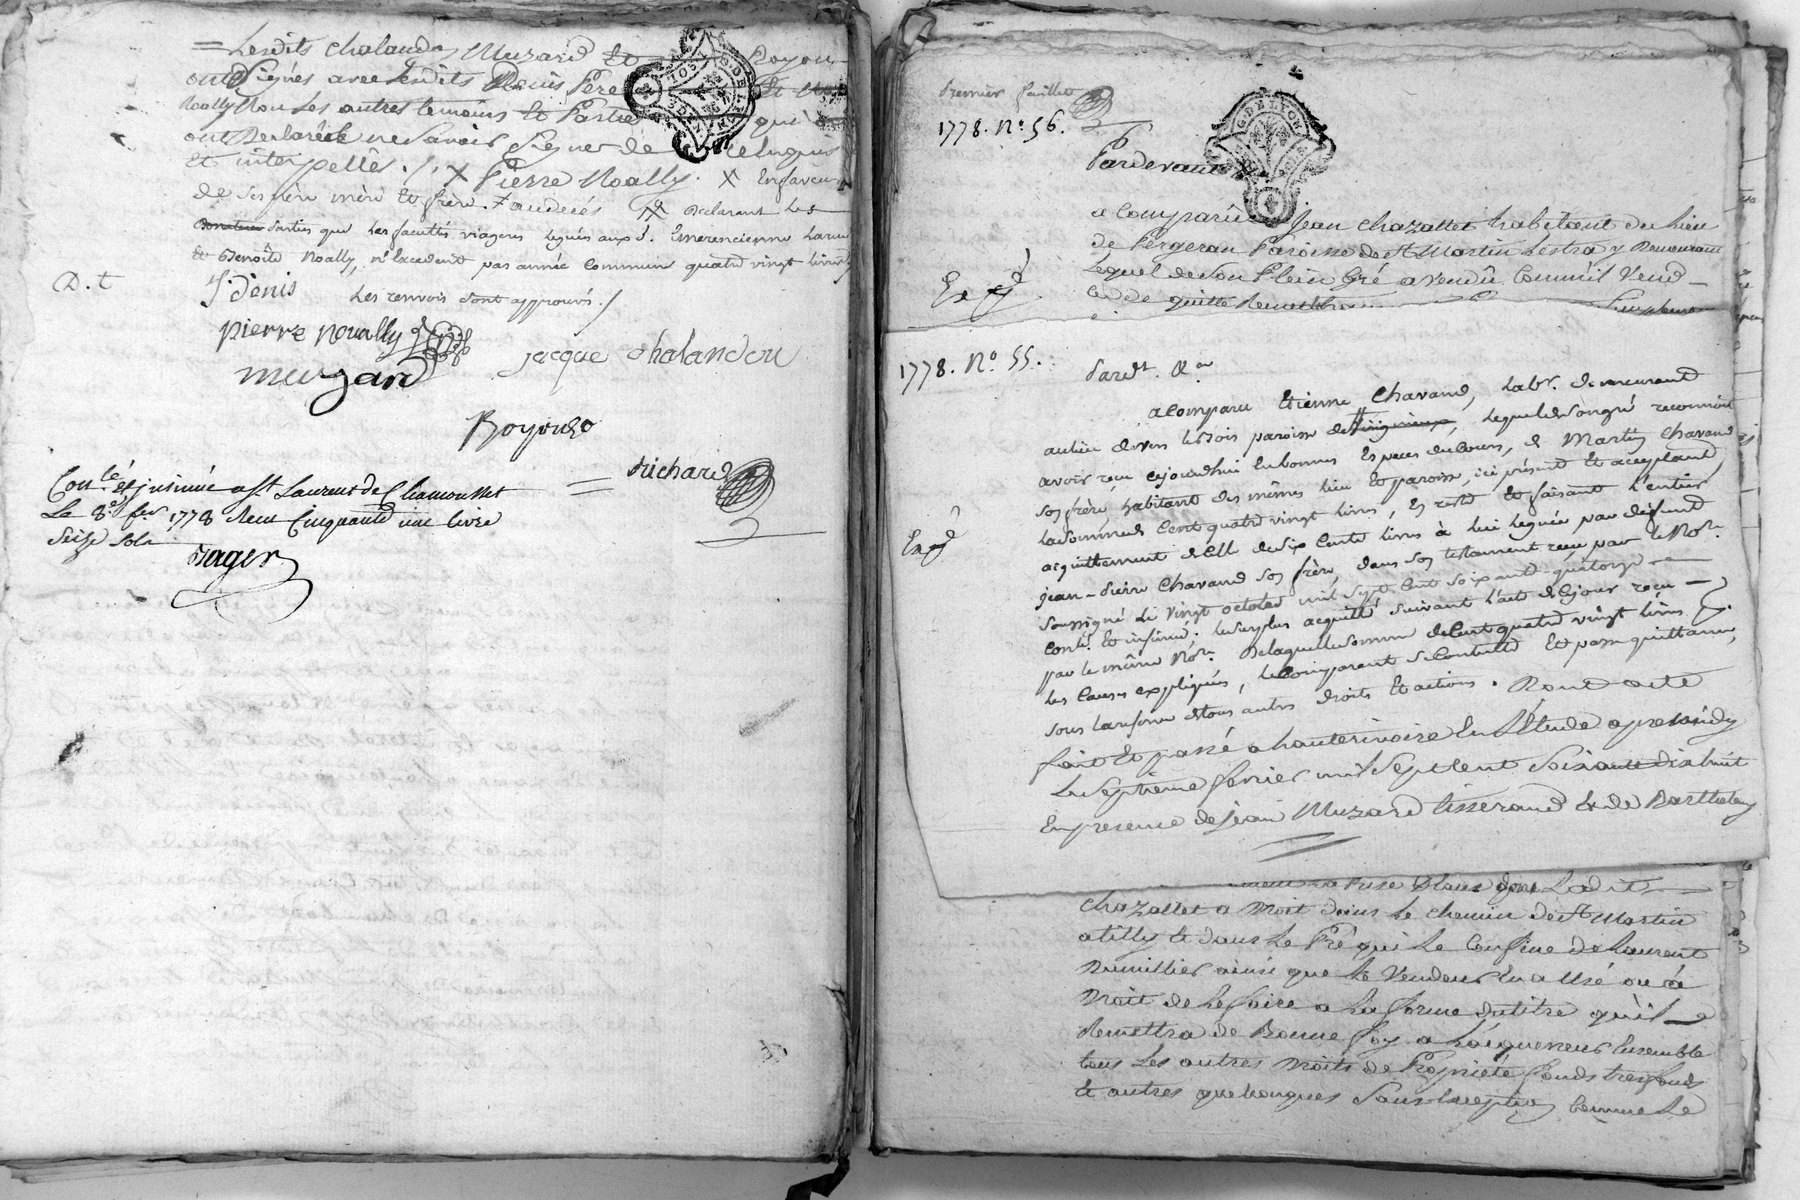 = Lesdits chalandon Muzard Et Boyon
ont Signés avec Lesdits Denis Pere
Noally Non Les autres temoins Et Partie qui
ont Declaré Ne Savoir Signer de Ce Enquis
Et interpellés ./. X Pierre Noally. X En faveur
de Ses père mère Et frère. Declarant Les
Parties que Les facultés viageres leguées aux d. Emerencienne
Et Benoite Noally, n'Excedent pas année Commune quatre vingt livres
D. t
J: denis Les renvois sont approuvés ./
pierre noually
jacque chalandon
muzard
Boyond
Richard
Con.lé et insinué a St Laurent de Chamousset
Le 8.e fev. 1778 Reçu Cinquante une livre
Seize Sols
Jager
Premier feuillet
1778. No. 56.
Pardevant
a Comparû jean Chazallet habitant du Lieu
de Pergeran Paroisse de St Martin Lestra y Demeurant
Lequel de Son Plein Gré a vendû Comm'il Vend
Cede quitte Remet
Exp.d
1778. No. 55.
Pardt. &a
a Comparu Etienne Chavand, labr. demeurant
au lieu de vers le bois paroisse de, lequel de Son gré reconnoit
avoir reçu cejourdhui En bonnes Especes du Cours, de Martin Chavand
Son frère, habitant des mêmes lieu Et paroisse, ici présent Et acceptant,
la somme de Cent quatre vingt livres, En reste Et faisant l'entier
acquittement de Celle de Six Cents livres à lui leguée par defunt
jean-pierre Chavand Son frère, dans Son testament reçu par le No.re
Soussigné le vingt octobre mil Sept Cent Soixante-quatorze
Exp.d
Contlé. Et insinué. le Surplus acquitté Suivant l'acte de Ce jour reçu
par le même No.re De laquelle somme de Cent quatre vingt livres
les Causes expliquées, le Comparant Se Contente Et passe quittance,
Sous la reserve de tous autres droits Et actions. Dont acte
fait Et passé a hauterivoire En L'Etude apres midy
Le Septième fevrier mil Sept Cent Soixante dix huit
En presence de jean Muzard tisserand Et de Barthelemy
Chazallet a Droit dans Le Chemin de St Martin
a tilly Et dans Le Pré qui Le Confine de Laurent
Dumillier ainsi que Le Vendeur En a Usé ou à
Droit de Le faire a La forme du titre qu'il
Remettra de Bonne foy a L'acquereur Ensemble
tous Les autres Droits de Propriété fonds tresfonds
Et autres quelconques Sans Exception Comme Le